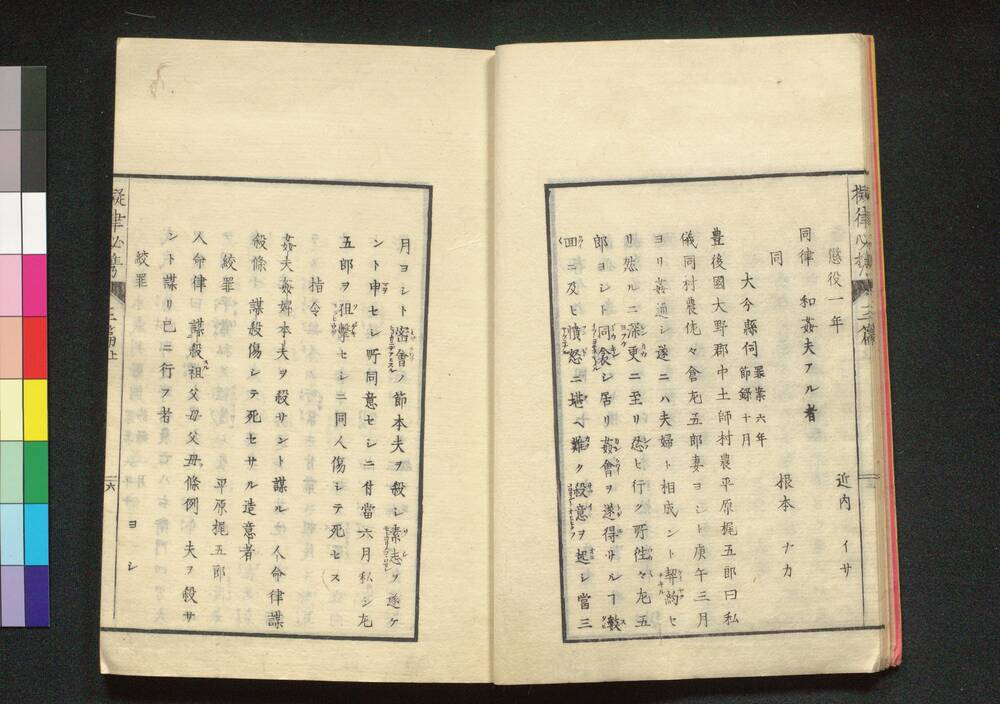 擬律必携 三篇上
懲役一年 近内 イサ
同律 和姦夫アル者
同 根本 ナカ
大分縣伺 罪案六年節録十月
豊後國大野郡中土師村農平原梶五郎曰私
儀同村農佐々倉龙五郎妻ヨシト庚午三月
ヨリ姦通シ遂ニハ夫婦ト相成ント契約セ
リ然ルニ深更ニ至リ忍ヒ行ク所徃々龙五
郎ヨシト同衾シ居リ姦會ヲ遂得サルヿ數
四ニ及ヒ憤怒ニ堪ヘ難ク殺意ヲ起シ當三
月ヨシト密會ノ節本夫ヲ殺シ素志ヲ遂ケ
ント申セシ所同意セシニ付當六月私シ龙
五郎ヲ狙撃セシニ同人傷シテ死セス
指令
姦夫姦婦本夫ヲ殺サント謀ル 人命律謀
殺條 謀殺傷シテ死セサル造意者
絞罪 平原梶五郎
人命律 謀殺祖父母父母條例 夫ヲ殺サ
ント謀リ已ニ行フ者
絞罪 ヨシ
擬律必携 三篇上 六